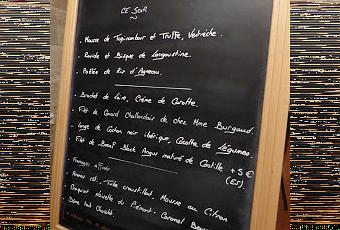 CE SOIR
. Mousse de Topinambour et Truffe, Ventrèche.
. Raviole et Bisque de Langoustine.
. Poêlée de Ris d'Agneau.
. Brochet de Loire, Crème de Carotte.
. Filet de Canard Challandais de chez Mme Burgaud.
. Longe de Cochon noir ibérique, Cocotte de légumes.
. Filet de Boeuf Black Angus maturé de Castille + 5 €
(ES)
. Fromages affinés
. Ananas rôti, Tube croustillant Mousse au Citron
. Croquant noisette du Piémont, Caramel
. Dôme tout Chocolat.